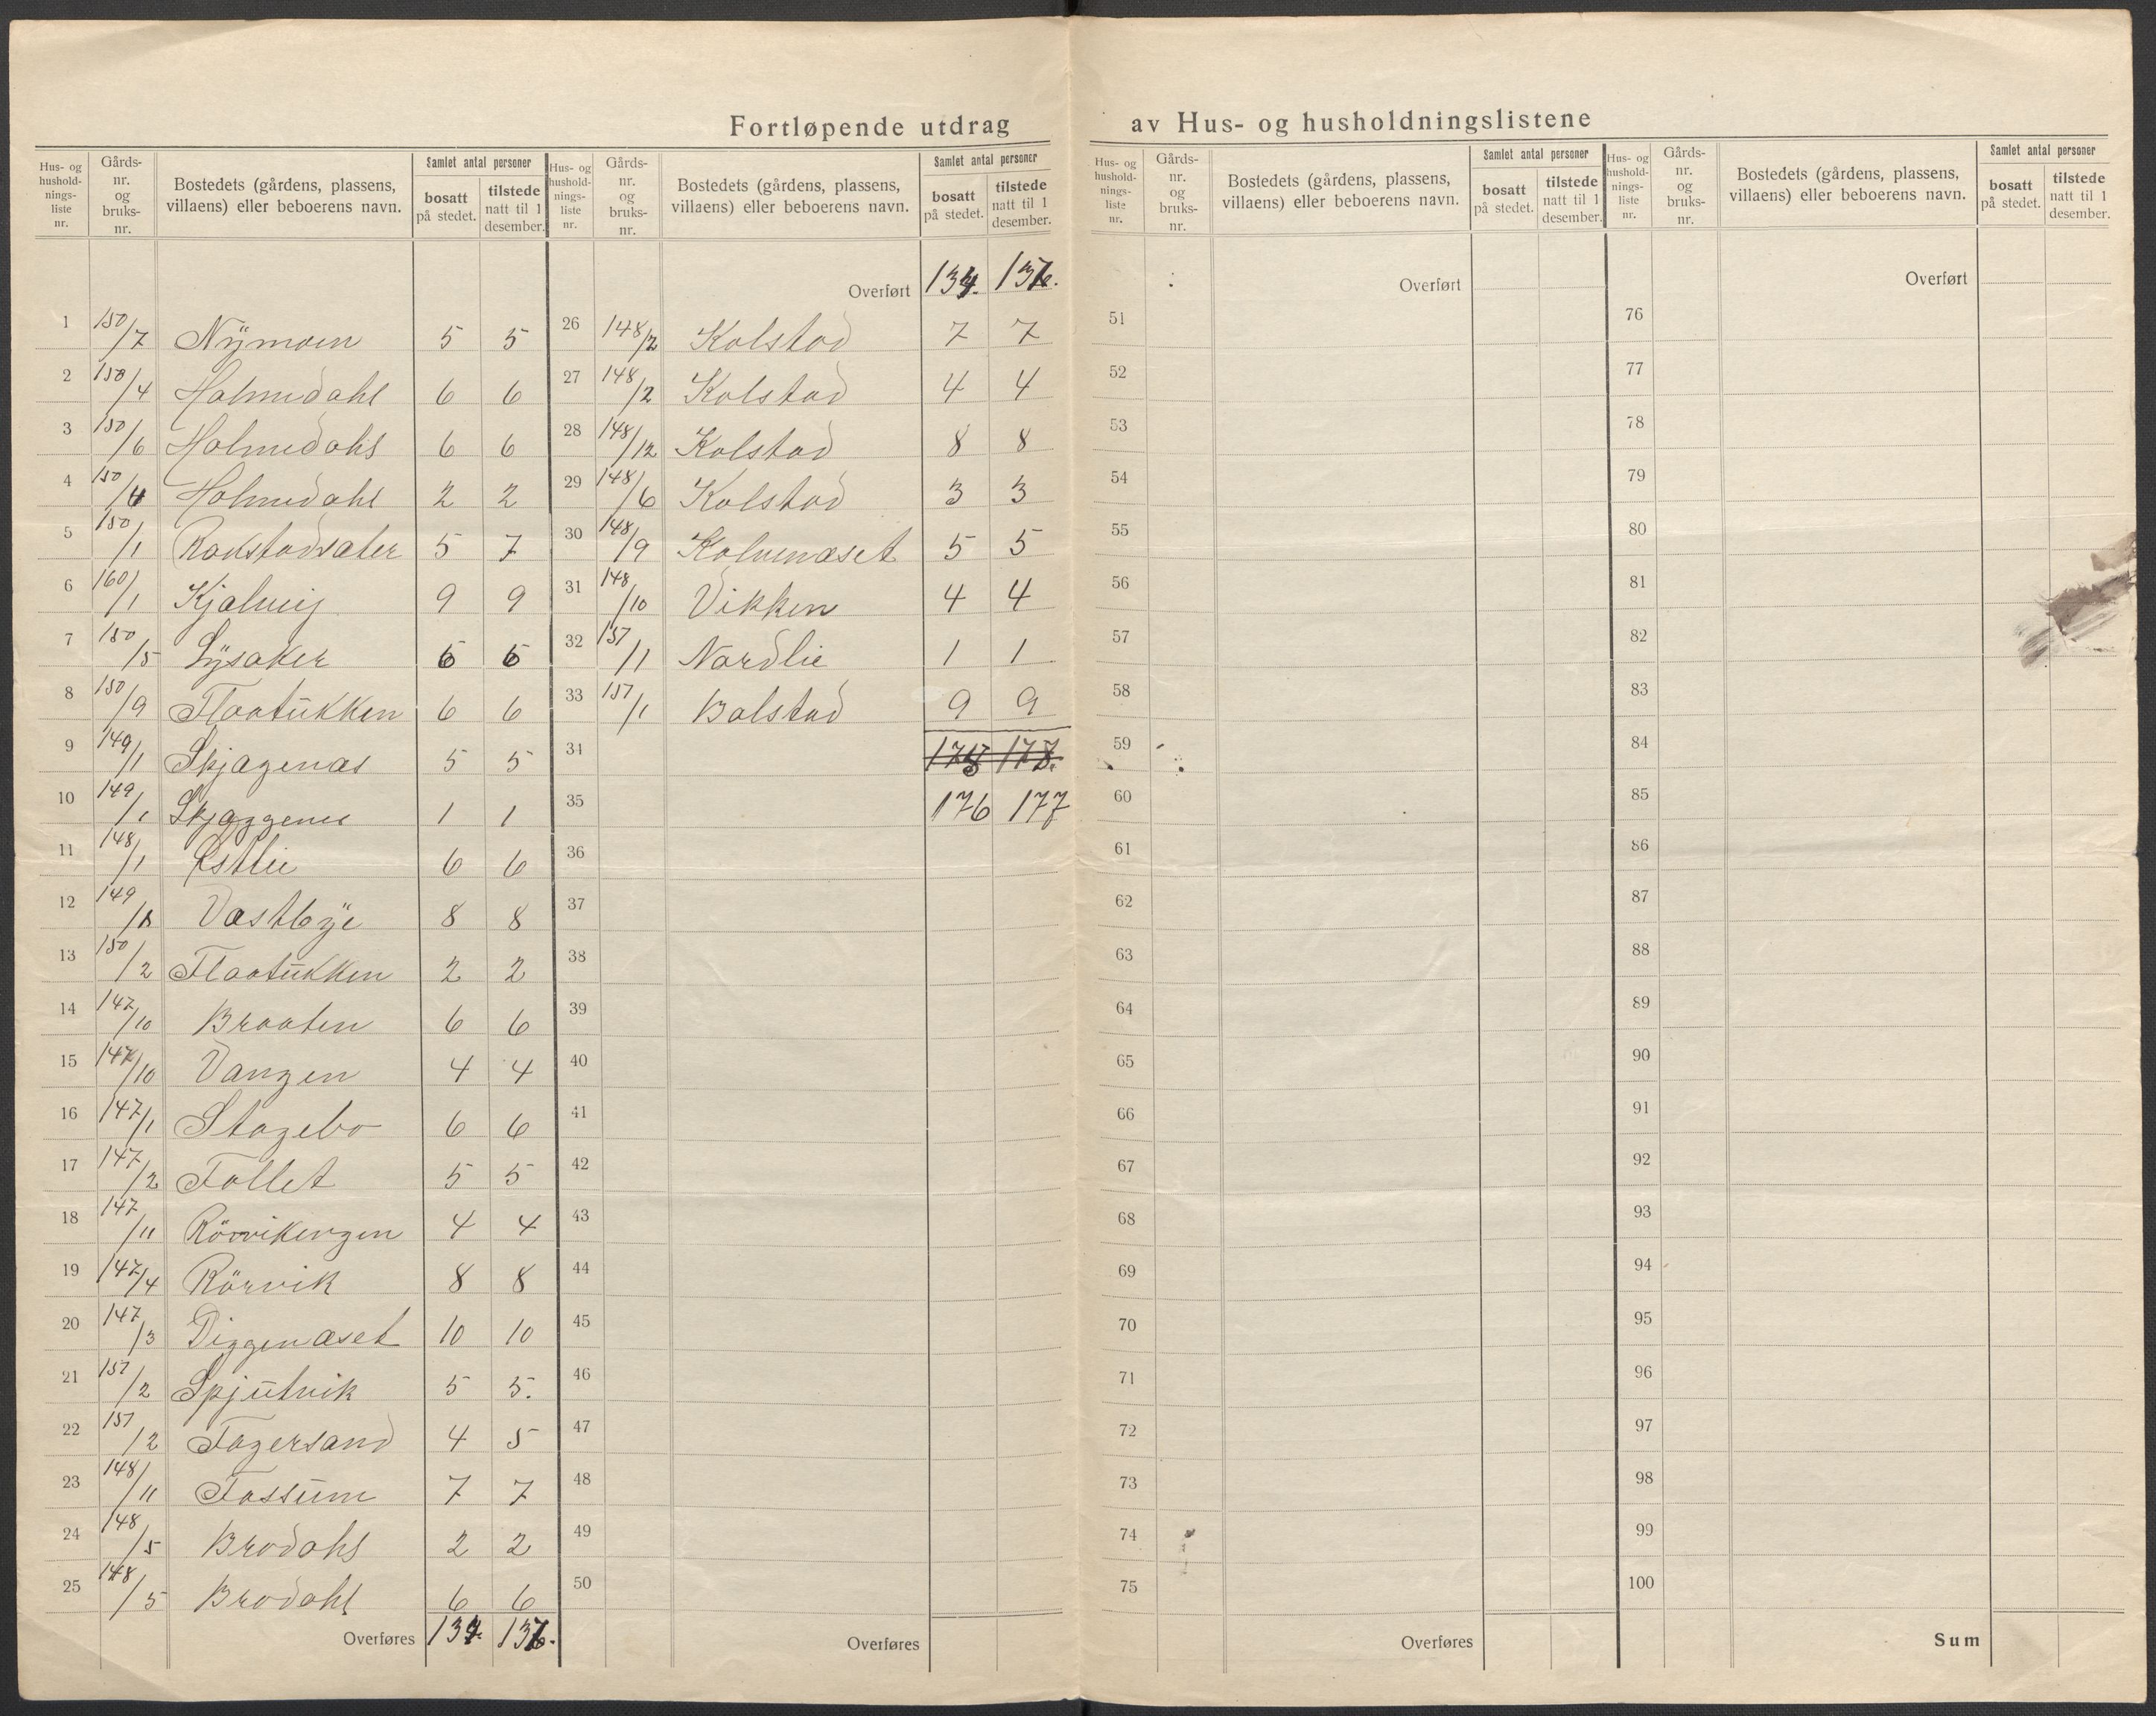 Fortløpende utdrag av Hus- og husholdningslistene
Hus- og hushold-nings-liste nr. Gårds-nr. og bruks-nr. Bostedets (gårdens, plassens, villaens) eller beboerens navn. Samlet antal personer bosatt på stedet. tilstede natt til 1 desember.
1 150/7 Nÿmoen 5 5
2 150/4 Holmedahl 6 6
3 150/6 Holmedahl 6 6
4 150/4 Holmedahl 2 2
5 150/1 Rakstadsæter 5 7
6 160/1 Kjølvig 9 9
7 150/5 Lÿsaker 6 6
8 150/9 Flaatükken 6 6
9 149/1 Skjægenæs 5 5
10 149/1 Skjæggenes 1 1
11 148/1 Estlie 6 6
12 149/ Væstbÿe 8 8
13 150/2 Flaatükken 2 2
14 147/10 Braaten 6 6
15 147/10 Vangen 4 4
16 147/1 Stagebo 6 6
17 147/2 Tollet 5 5
18 147/11 Rörvikengen 4 4
19 147/4 Rörvik 8 8
20 147/3 Diggenæset 10 10
21 157/2 Spjütvik 5 5.
22 157/2 Fagersand 4 5
23 148/11 Fossüm 7 7
24 148/5 Brodahl 2 2
25 148/5 Brodahl 6 6
Overføres 134. 136.
Hus- og hushold-nings-liste nr. Gårds-nr. og bruks-nr. Bostedets (gårdens, plassens, villaens) eller beboerens navn. Samlet antal personer bosatt på stedet. tilstede natt til 1 desember.
Overført 134. 136.
26 148/2 Kolstad 7 7
27 148/2 Kolstad 4 4
28 148/12 Kolstad 8 8
29 148/6 Kolstad 3 3
30 148/9 Kolvenæset 5 5
31 148/10 Vikken 4 4
32 157/1 Nordlie 1 1
33 157/1 Bolstad 9 9
34
35 176 177
36
37
38
39
40
41
42
43
44
45
46
47
48
49
50
Overføres
Hus- og hushold-nings-liste nr. Gårds-nr. og bruks-nr. Bostedets (gårdens, plassens, villaens) eller beboerens navn. Samlet antal personer bosatt på stedet. tilstede natt til 1 desember.
Overført
51
52
53
54
55
56
57
58
59
60
61
62
63
64
65
66
67
68
69
70
71
72
73
74
75
Overføres
Hus- og hushold-nings-liste nr. Gårds-nr. og bruks-nr. Bostedets (gårdens, plassens, villaens) eller beboerens navn. Samlet antal personer bosatt på stedet. tilstede natt til 1 desember.
Overført
76
77
78
79
80
81
82
83
84
85
86
87
88
89
90
91
92
93
94
95
96
97
98
99
100
Sum